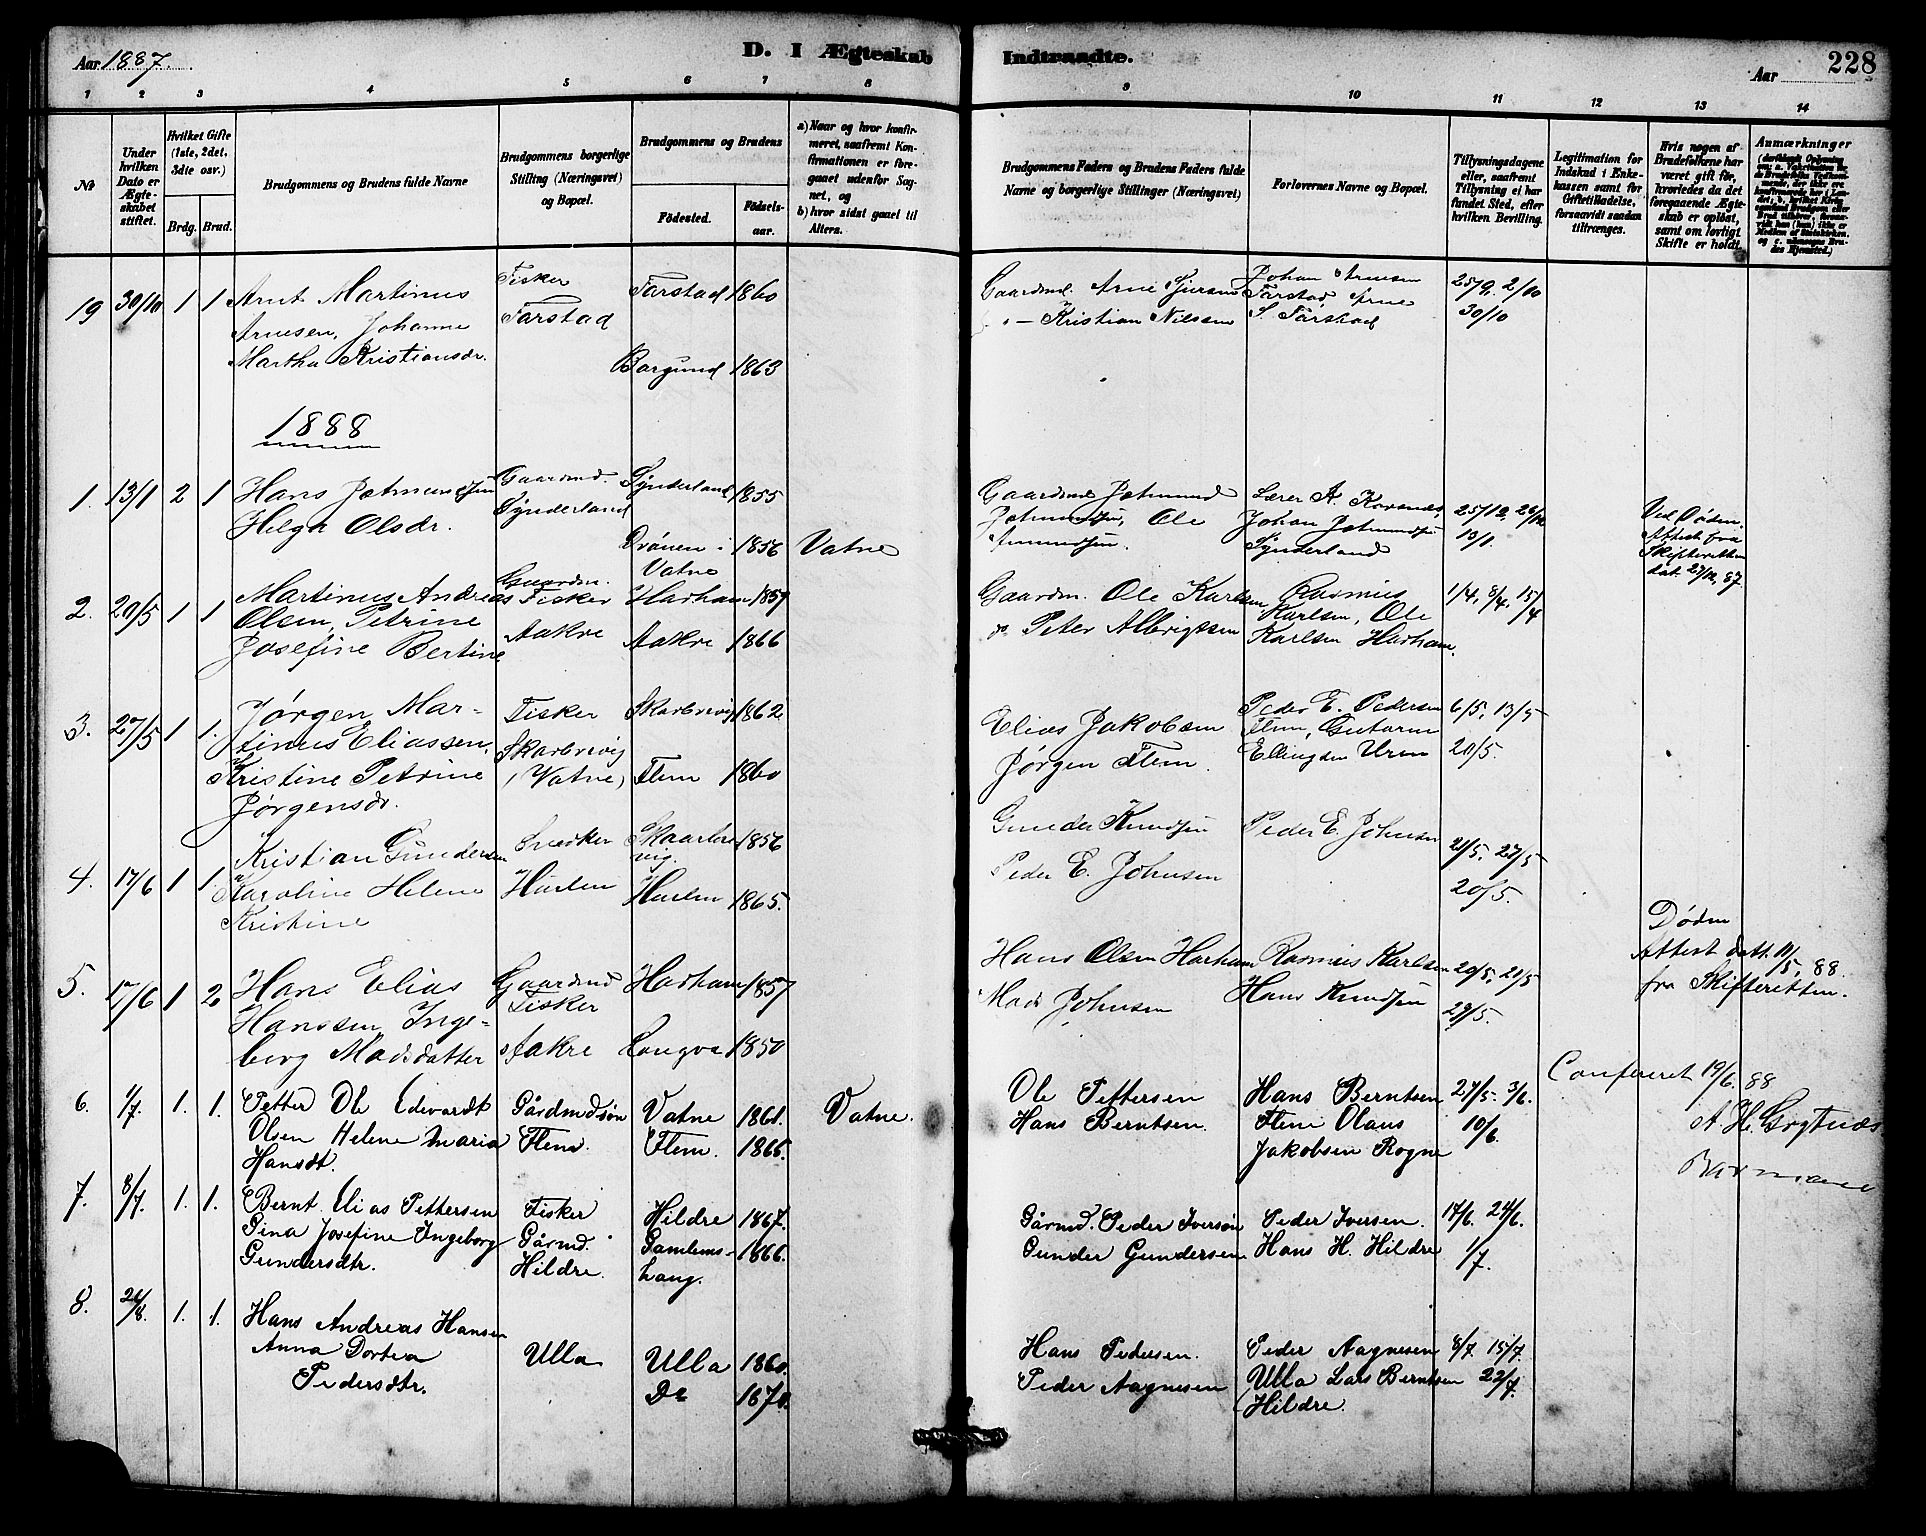 Aar 1887.
D. I Ægteskab
Indtraadte.
Aar
228
1 2 3 4 5 6 7 8
9 10 11 12 13 14
No
Under hvilken Dato er Ægteskabet stiftet.
Hvilket Gifte (1ste, 2det, 3die osv.)
Brdg. Brud.
Brudgommens og Brudens fulde Navne
Brudgommens borgerlige Stilling (Næringsvei) og Bopæl.
Brudgommens og Brudens
Fødested.
Fødsels-aar.
a) Naar og hvor konfirmeret, saafremt Konfirmationen er foregaaet udenfor Sognet, og
b) hvor sidst gaaet til Alters.
Brudgommens Faders og Brudens Faders fulde Navne og borgerlige Stillinger (Næringsvei)
Forlovernes Navne og Bopæl.
Tillysningsdagene eller, saafremt Tillysning ei har fundet Sted, efter hvilken Bevilling.
Legitimation for Indskud i Enkekassen samt for Giftetilladelse, forsaavidt saadan tiltrænges.
Hvis nogen af Brudefolkene har været gift før, hvorledes da det foregaaende Ægteskab er opløst, samt om lovligt Skifte er holdt.
Anmærkninger
19 30/10 1 1 Arnt Martinus Fisker Farstad 1860 Gaardmd. Arne Sjursen Johan Arnesen 25/9. 2/10
Arnesen, Johanne Farstad " — Kristian Nilsen Farstad Arne 30/10
Martha Kristiansdr. Borgund 1863 S. Farstad
1888
1. 13/1 2 1 Hans Jetmundsen Gaardmd. Synderland 1855 Gaardmd Jetmund Lærer A. 25/12, 26/12 Ved Døden.
Helga Olsdr. Synderland Jetmundsen, Ole Johan Jetmundsen 13/1. Attest fra
Drønen i Vatne 1856 Vatne Amundsen. Synderland Skifteretten dat. 27/12, 87.
2. 20/5 1 1 Martinus Andreas Gaardm. Fisker Harham 1857 Gaardm. Ole Karlsen Rasmus 1/4, 8/4, 15/4
Olsen, Petrine Aakre Aakre 1866 do Peter Albrigtsen Karlsen, Ole
Josefine Bertine Karlsen Harham.
3. 27/5 1 1. Jørgen Mar- Fisker Skarbrevig 1862 Elias Jakobsen Peder E. Pedersen 6/5, 13/5
tinus Eliassen, Skarbrevig Jørgen Flem. Flem, Gutorm 20/5.
Kristine Petrine (Vatne) Flem 1860 Ellingsen Urem
Jørgensdr.
4. 17/6 1 1. Kristian Gundersen Snedker Skaarbrevig. 1856 Gunder Knudsen Peder E. Johnsen 21/5, 27/5
Karoline Helene Huslen Huslen 1865. Peder E. Johnsen 20/5.
Kristine
5. 17/6 1 2 Hans Elias Gaardmd Harham 1857 Hans Olsen Harham Rasmus Karlsen 20/5, 21/5 Døden
Hanssen, Inge- Fisker Mads Johnsen Hans Knudsen 29/5. Attest datt. 11/5, 88.
borg Madsdatter Aakre Longva 1850 fra Skifteretten.
6. 1/7. 1. 1. Petter Ole Edvardt Gårdmdsøn Vatne 1861. Vatne. Ole Pettersen Hans Berntsen 27/5. 3/6. Confereret 19/6. 88
Olsen Helene Maria Flem. Flem. 1865. Hans Berntsen. Flem Olaus 10/6. A. H.
Hansdt. Jakobsen Rogne
7. 8/7. 1. 1. Bernt Elias Pettersen Fisker Hildre 1867. Gårmd. Peder Iversøn Peder Iversen. 17/6. 24/6.
Gina Josefine Ingeborg Gårmd. Gamlems- 1866. Gunder Gundersen Hans H. Hildre 1/7.
Gundersdtr. Hildre. haug.
8. 26/8. 1. 1. Hans Andreas Hansen Ulla Ulla 1860. Hans Pedersen. Peder Aagnesen 8/7. 15/7.
Anna Dortea Do 1870. Peder Aagnesen Ulla Lars Berntsen 22/7.
Pedersdtr. Hildre.